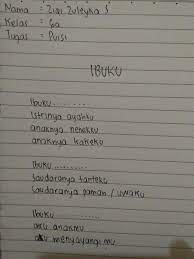 Nama = Ziqi Zuleyka S
Kelas = 6a
Tugas = Puisi
IBUKU
Ibuku ..........
Istrinya ayahku
anaknya nenekku
anaknya kakekku
Ibuku ..........
Saudaranya tanteku
Saudaranya paman / uwaku
Ibuku ..........
aku anakmu
aku menyayangi mu